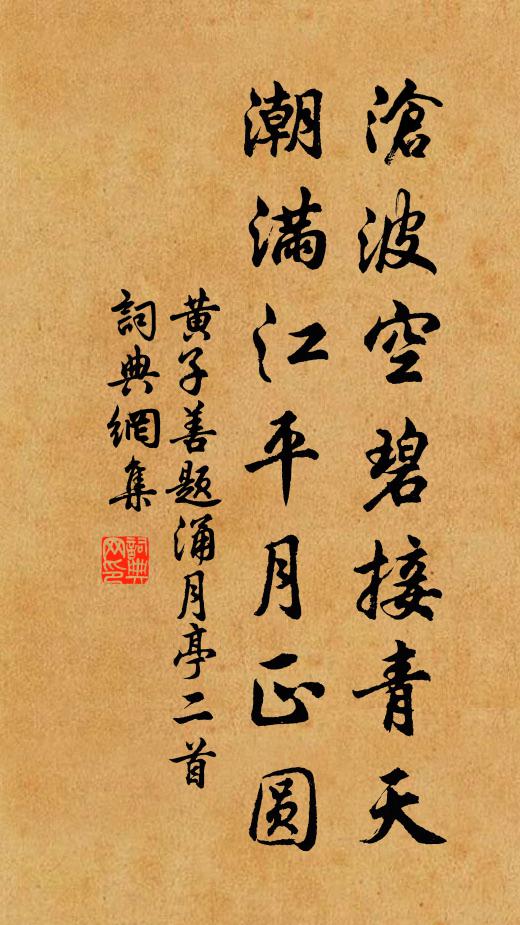 滄波空碧接青天
潮滿江平月正圆
黄子善题涌月亭二首
詞典網集
詞典
网印